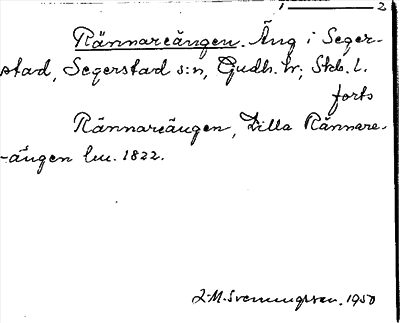 1 2
Rännareängen. Äng i Seger-
stad, Segerstad s:n, Gudh. hr; Skb. l.
forts
Rännareängen, Lilla Rännare-
-ängen lm. 1822.
1950